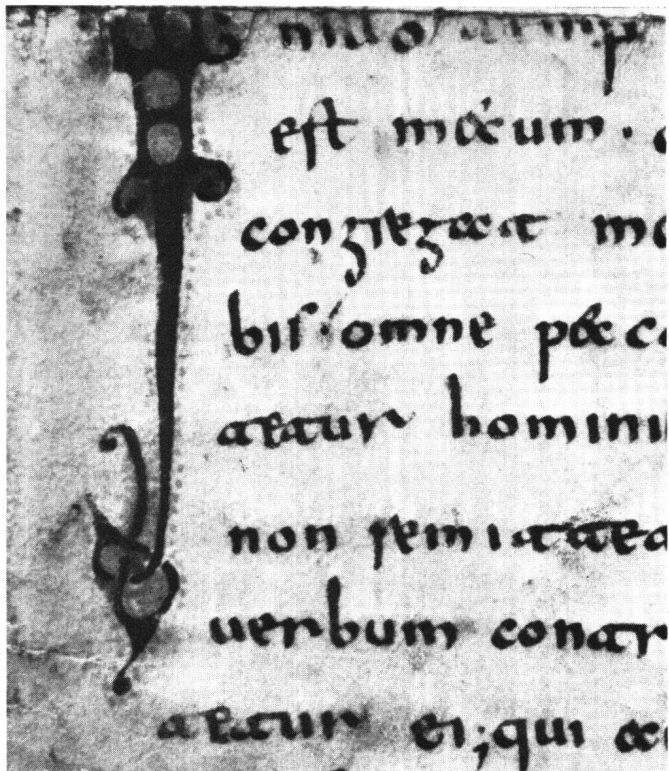 est mecum ·
congregat me
bis · omne pecca
tetur homini
non remittet
uerbum contr
tetur ei; qui